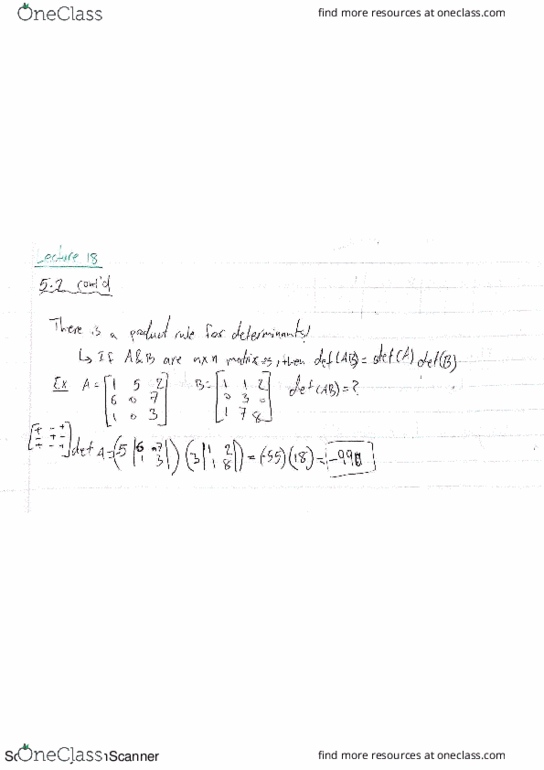 OneClass find more resources at oneclass.com
Lecture 18
5.2 cont'd
There is a product rule for determinants!
↳ If A&B are nxn matrixes, then det(AB) = det(A) det(B)
Ex A = [1 5 2 B = [1 1 2 det(AB) = ?
6 0 7 0 3 0
1 0 3] 1 7 8]
[+ - +
- + -
+ - +] det A = (-5 |6 7 (3 |1 2 = (-55)(18) = -990
1 3|) 1 8|)
OneClass Scanner find more resources at oneclass.com